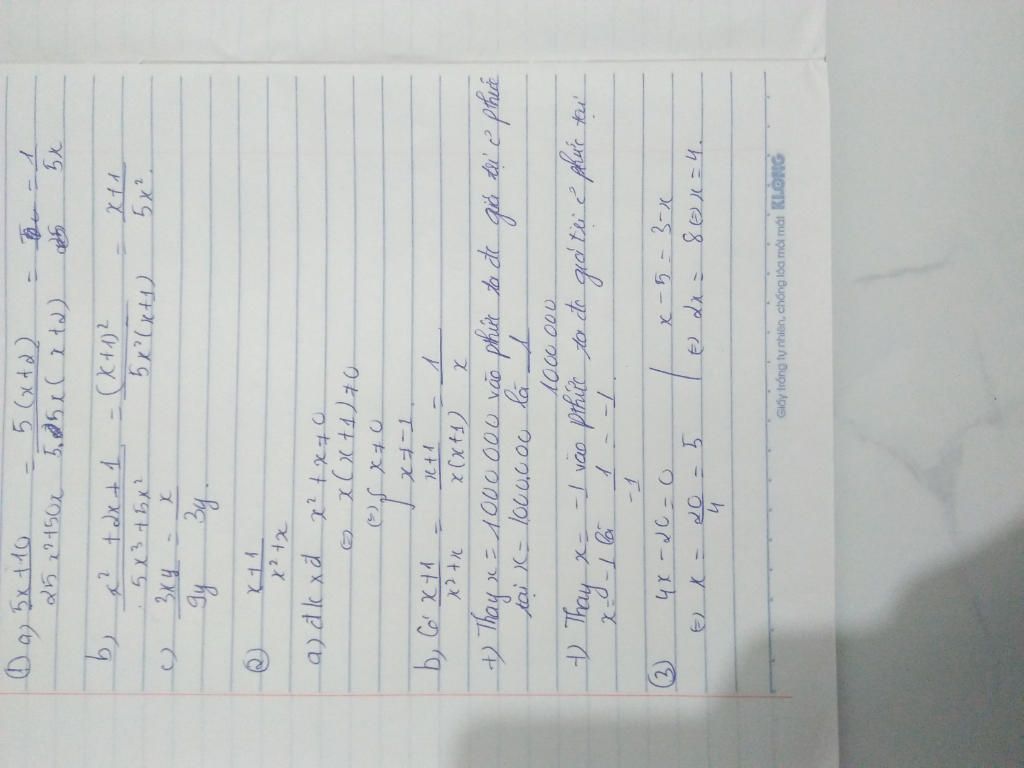 ① a) 5x+10 / 25x²+50x = 5(x+2) / 5.5x(x+2) = = 1 / 5x
b, x²+2x+1 / 5x³+5x² = (x+1)² / 5x²(x+1) = x+1 / 5x².
c) 3xy / 9y = x / 3y.
② x+1 / x²+x
a) đkxđ x²+x≠0
⇔ x(x+1)≠0
⇔ { x≠0
x≠-1.
b, Có: x+1 / x²+x = x+1 / x(x+1) = 1 / x
+) Thay x = 1000000 vào phthức ta đc giá trị c phthức
tại x = 1000000 là 1 / 1000000
+) Thay x = -1 vào phthức ta đc giá trị c phthức tại
x=-1 là 1 / -1 = -1.
③ 4x-20=0 | x-5=3-x
⇔ x = 20 / 4 = 5 | ⇔ 2x = 8 ⇔ x = 4.
Giấy trắng tự nhiên, chống lóa mỏi mắt KLONG